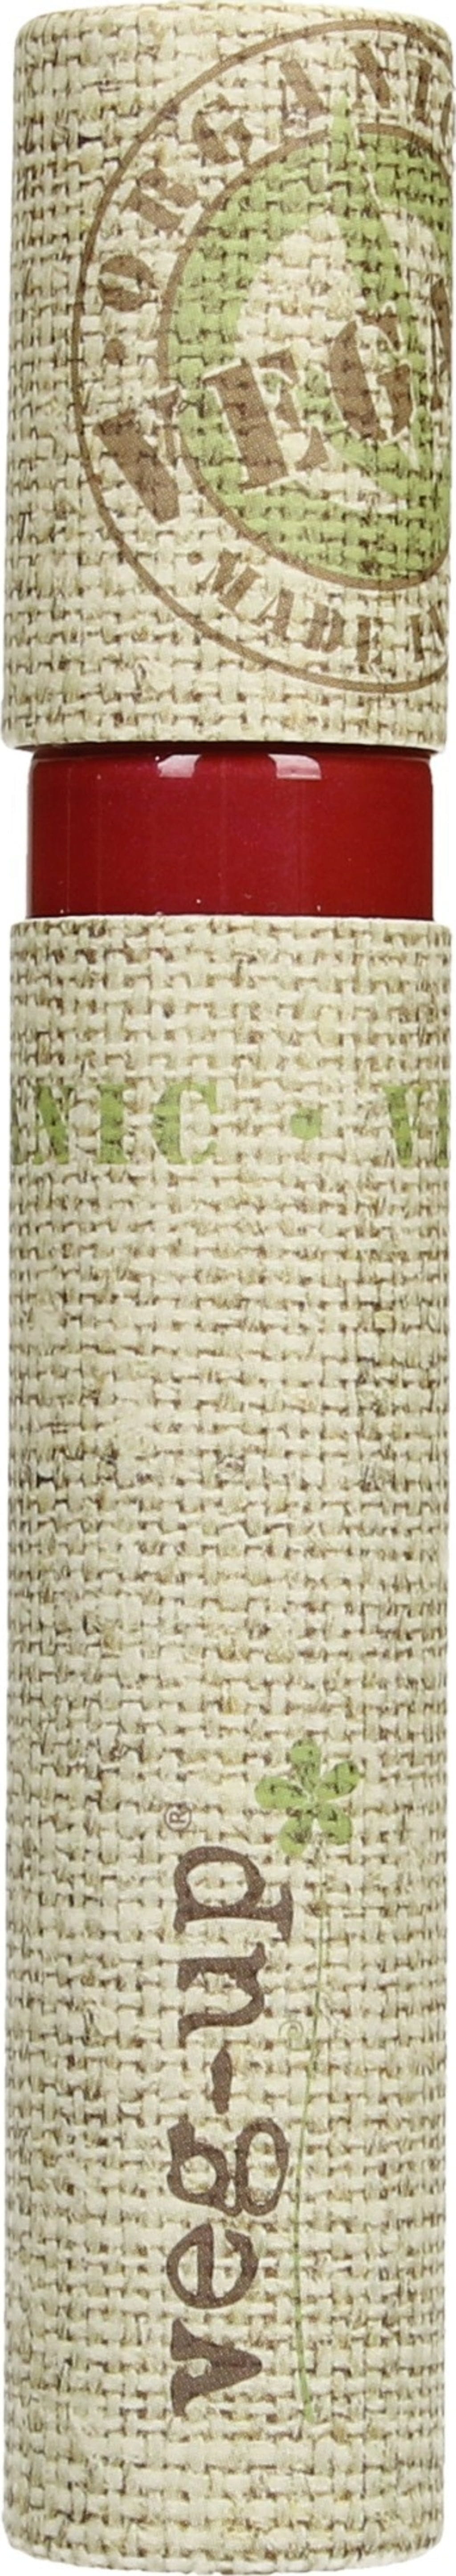 • ORGANIC
VEGA
• MADE IN
NIC • V
veg-up®